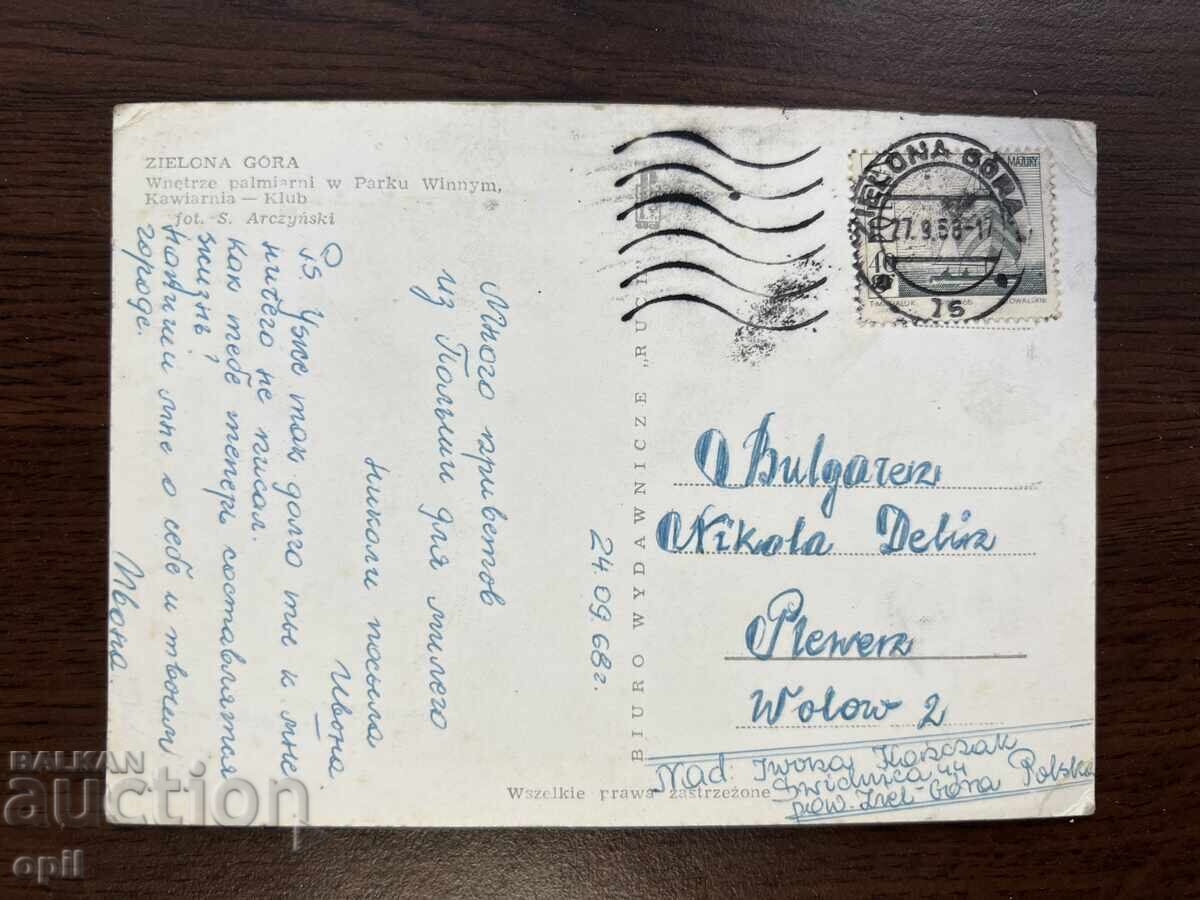 ZIELONA GÓRA
Wnętrze palmiarni w Parku Winnym,
Kawiarnia — Klub
fot. S. Arczyński
Много приветов
из Польши для милого
Николи посыла
Ивона
24.09.68г.
PS Уже так долго ты и мне
ничего не писал.
Как тебе теперь составляется
жизнь?
Напиши мне о себе и твоим
городе.
Ивона.
BIURO WYDAWNICZE „RUCH"
ZIELONA GÓRA
27.9.68-17
MAZURY
40
Bulgarien
Nikola
Plewen
Wolow 2
Nad: Iwona
Świdnica 44
pow. Ziel-Góra Polska
Wszelkie prawa zastrzeżone
BALKAN
auction
opil